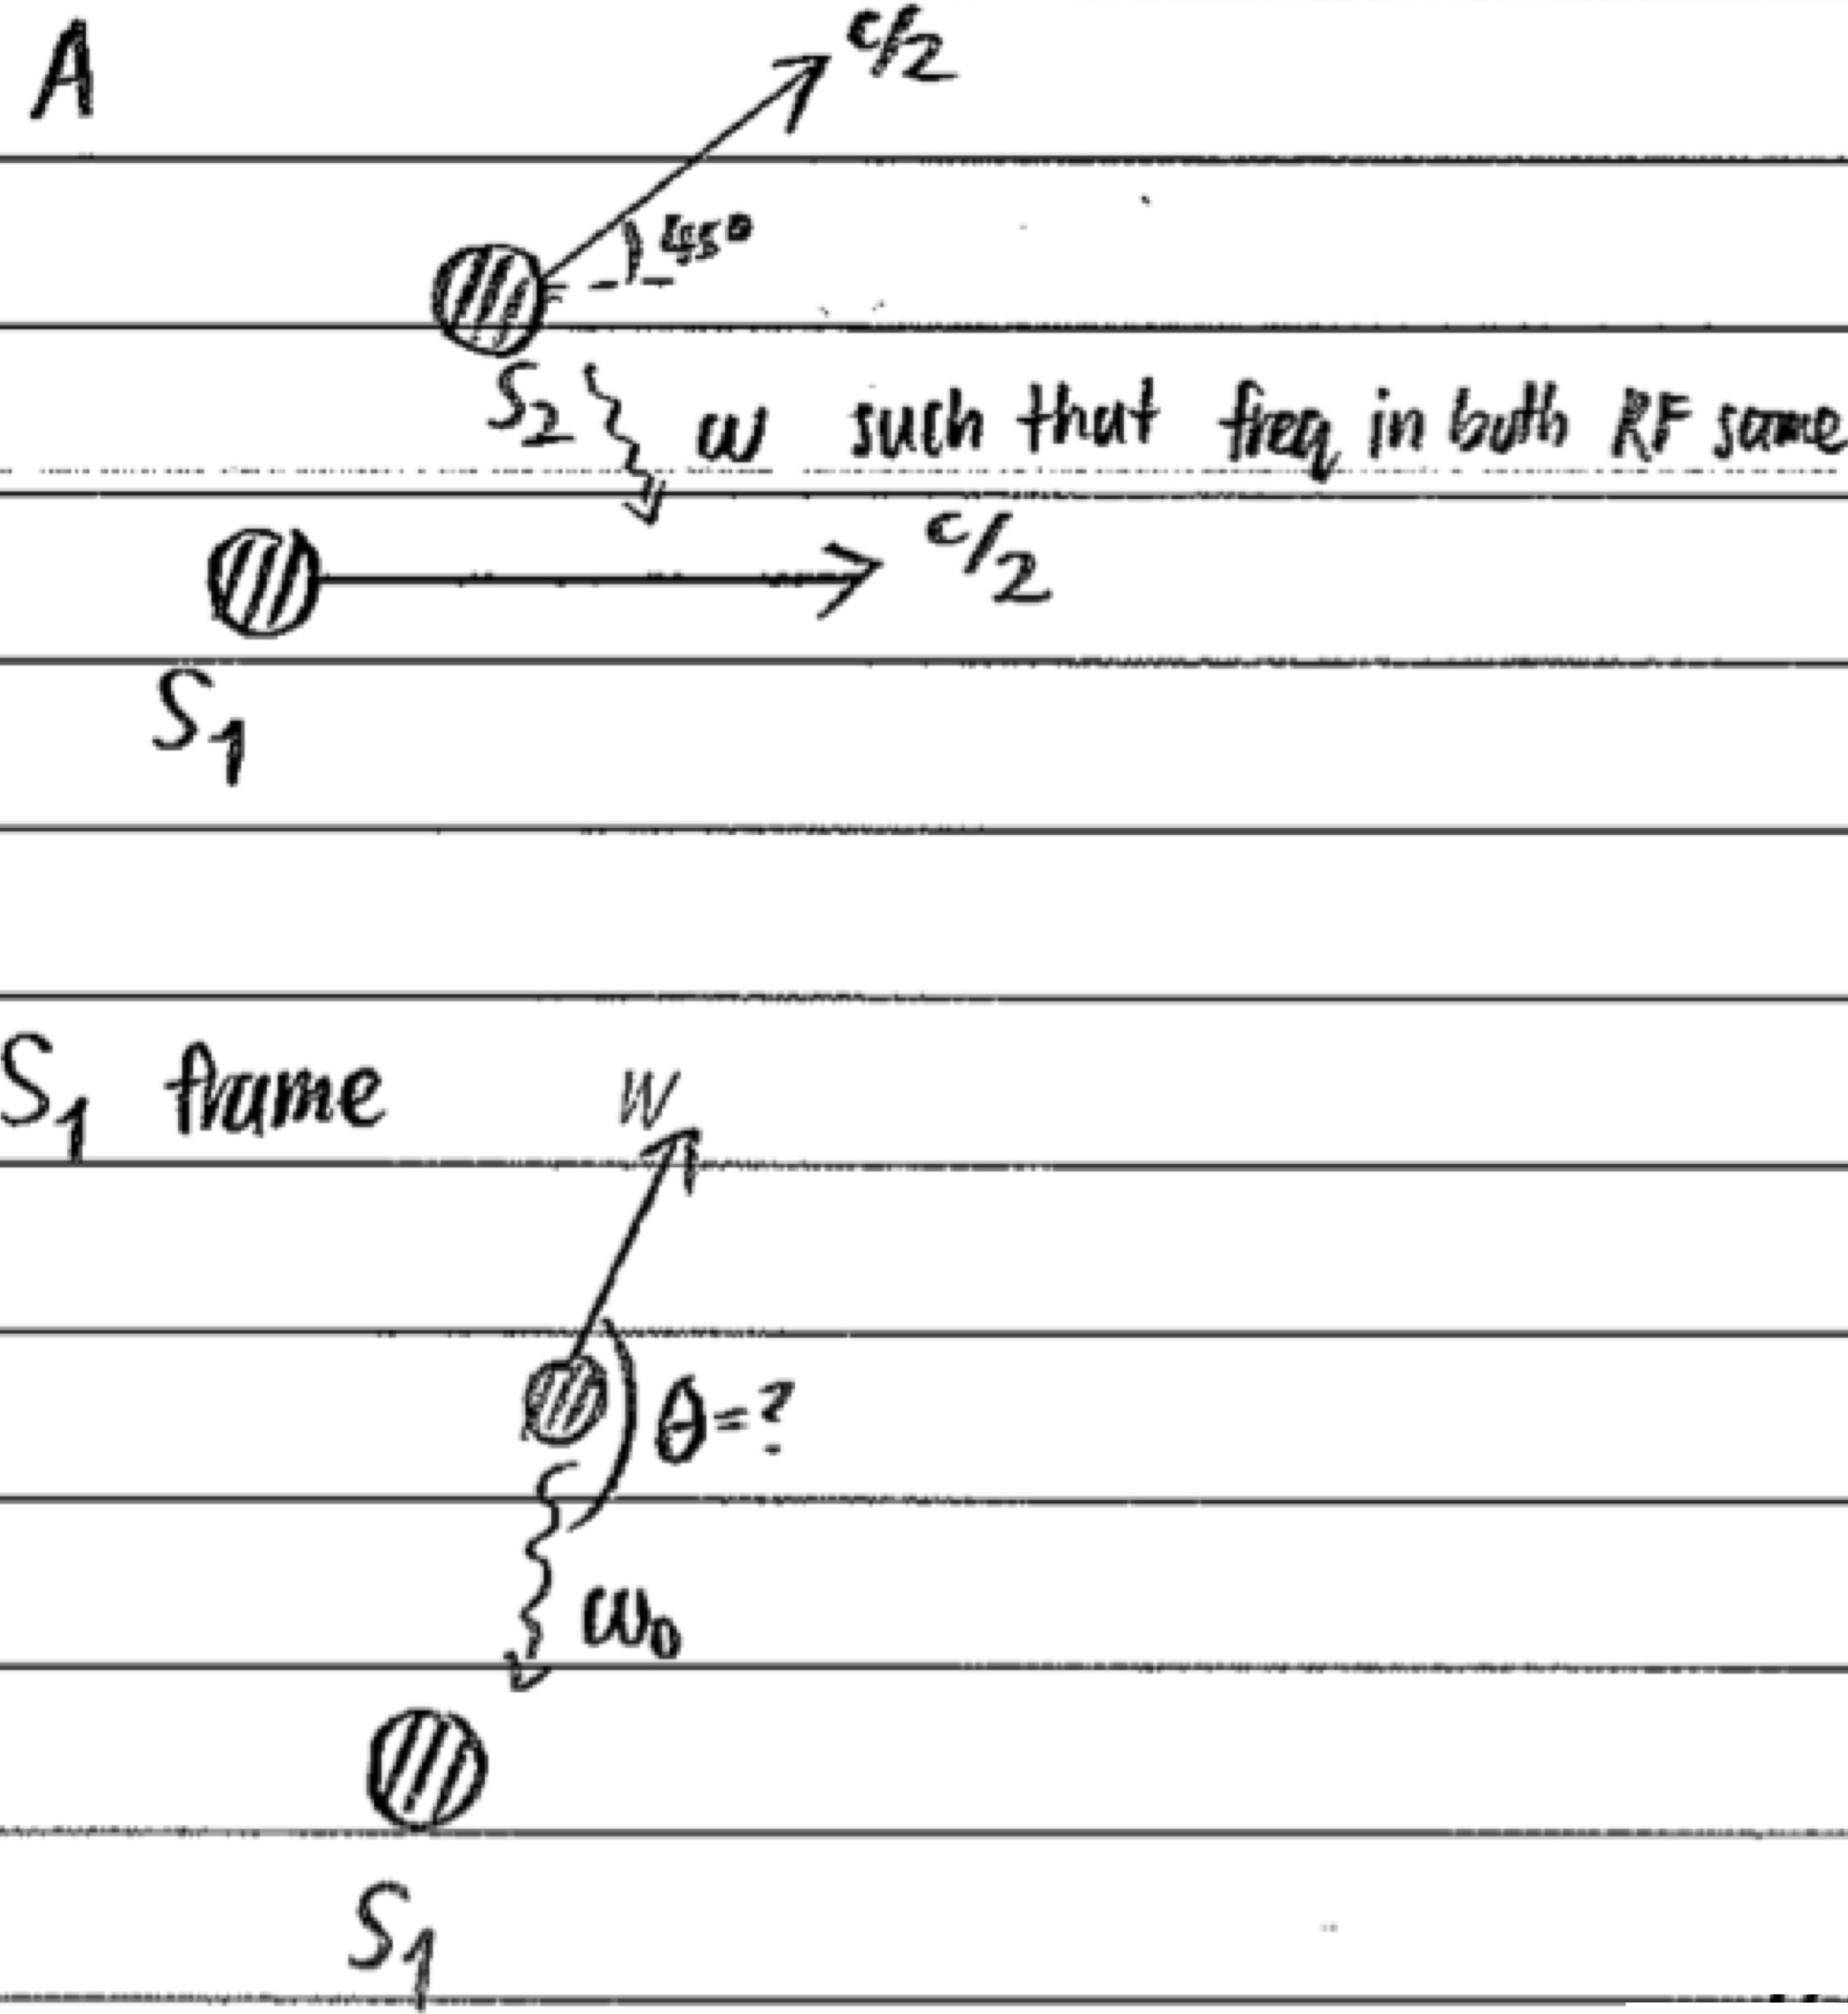 A
c/2
45°
S2 ω such that freq in both RF same
c/2
S1
S1 frame
W
θ=?
ω0
S1